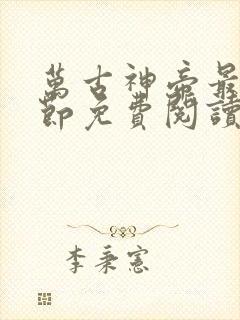 萬古神帝最
節免費閱讀
李秉憲